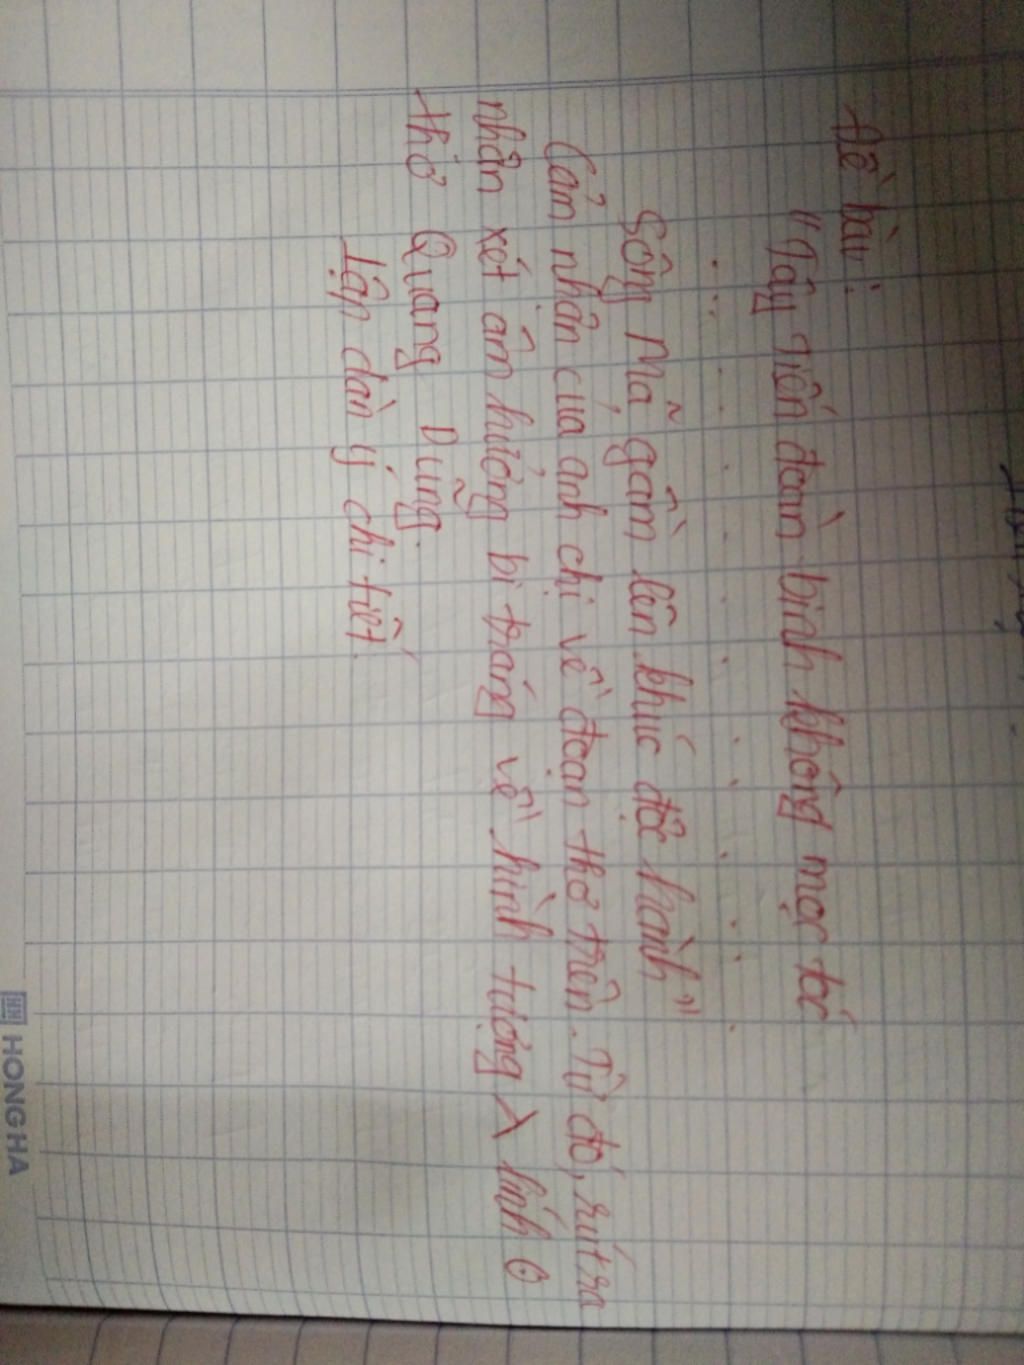 Đề bài:
"Tây Tiến đoàn binh không mọc tóc
. . . . . . . . . . . . .
Sông Mã gầm lên khúc độc hành"
Cảm nhận của anh chị về đoạn thơ trên. Từ đó, rút ra
nhận xét âm hưởng bi tráng về hình tượng λ lính
thơ Quang Dũng.
Lập dàn ý chi tiết.
HONG HA